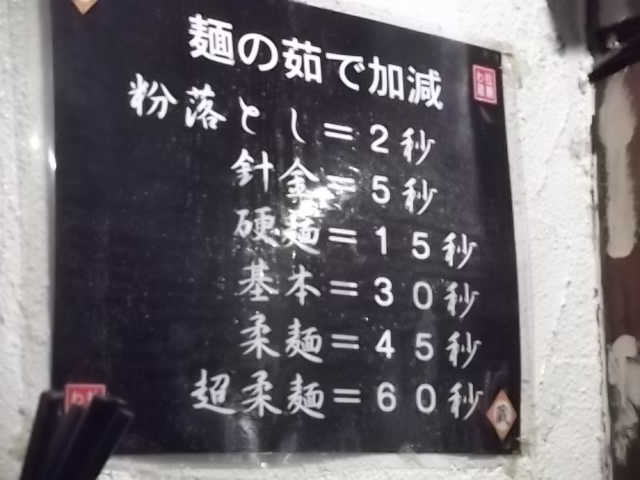 麺の茹で加減
粉落とし=2秒
針金=5秒
硬麺=15秒
基本=30秒
柔麺=45秒
超柔麺=60秒
蔵